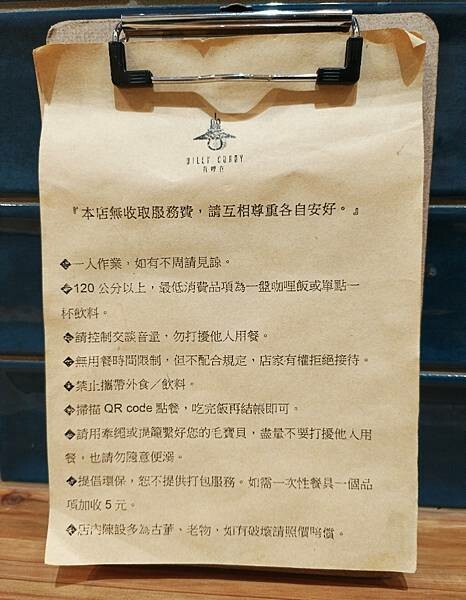 『本店無收取服務費，請互相尊重各自安好。』
一人作業，如有不周請見諒。
120 公分以上，最低消費品項為一盤咖哩飯或單點一
杯飲料。
請控制交談音量，勿打擾他人用餐。
無用餐時間限制，但不配合規定，店家有權拒絕接待。
禁止攜帶外食／飲料。
掃描 QR code 點餐，吃完飯再結帳即可。
請用牽繩或提籠繫好您的毛寶貝，盡量不要打擾他人用
餐，也請勿隨意便溺。
提倡環保，恕不提供打包服務。如需一次性餐具一個品
項加收 5 元。
店內陳設多為古董、老物，如有破壞請照價賠償。